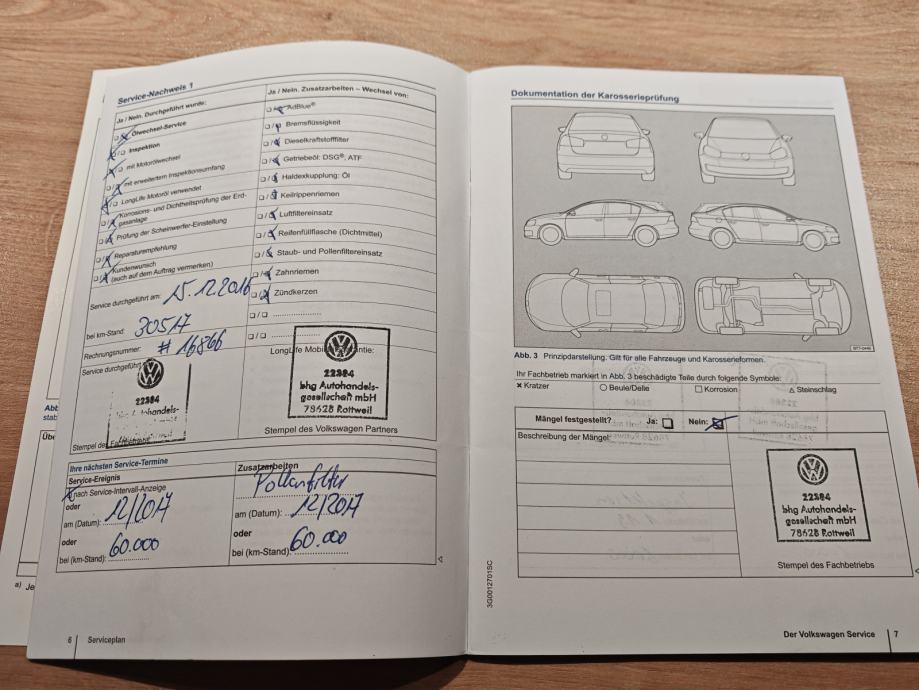 Service-Nachweis 1
Ja / Nein. Durchgeführt wurde:
Ölwechsel-Service
Inspektion
mit Motorölwechsel
mit erweitertem Inspektionsumfang
LongLife Motoröl verwendet
Korrosions- und Dichtheitsprüfung der Erd-
gasanlage
Prüfung der Scheinwerfer-Einstellung
Reparaturempfehlung
Kundenwunsch
(auch auf dem Auftrag vermerken)
Service durchgeführt am: 15.12.2016
bei km-Stand: 30517
Rechnungsnummer: # 16866
Service durchgeführt
22384
bhg Autohandels-
78628 Rottweil
Stempel des Fachbetriebs
Ja / Nein. Zusatzarbeiten – Wechsel von:
AdBlue®
Bremsflüssigkeit
Dieselkraftstofffilter
Getriebeöl: DSG®, ATF
Haldexkupplung: Öl
Keilrippenriemen
Luftfiltereinsatz
Reifenfüllflasche (Dichtmittel)
Staub- und Pollenfiltereinsatz
Zahnriemen
Zündkerzen
22384
bhg Autohandels-
gesellschaft mbH
78628 Rottweil
Stempel des Volkswagen Partners
Ihre nächsten Service-Termine
Service-Ereignis
nach Service-Intervall-Anzeige
oder
am (Datum): 12/2017
oder
bei (km-Stand): 60.000
Zusatzarbeiten
Pollenfilter
am (Datum): 12/2017
oder
bei (km-Stand): 60.000
6 Serviceplan
Dokumentation der Karosserieprüfung
Abb. 3 Prinzipdarstellung. Gilt für alle Fahrzeuge und Karosserieformen.
Ihr Fachbetrieb markiert in Abb. 3 beschädigte Teile durch folgende Symbole:
× Kratzer ○ Beule/Delle □ Korrosion △ Steinschlag
Mängel festgestellt? Ja: Nein:
Beschreibung der Mängel:
22384
bhg Autohandels-
gesellschaft mbH
78628 Rottweil
Stempel des Fachbetriebs
3G0012701SC
Der Volkswagen Service 7